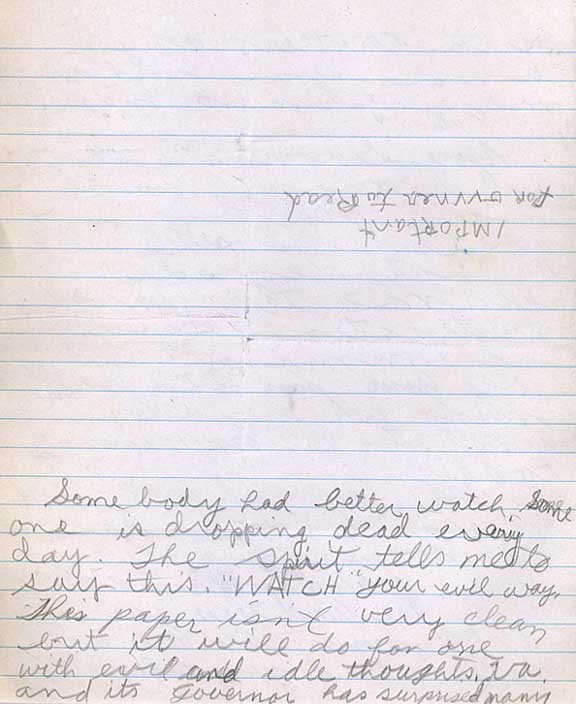 IMPORtant
FOR OWNER to Read
Some body had better watch, some
one is dropping dead every
day. The Spirit tells me to
say this. "WATCH" your evil way.
This paper isn't very clean
but it will do for one
with evil and idle thoughts. Va.
and its Governor has surprised many